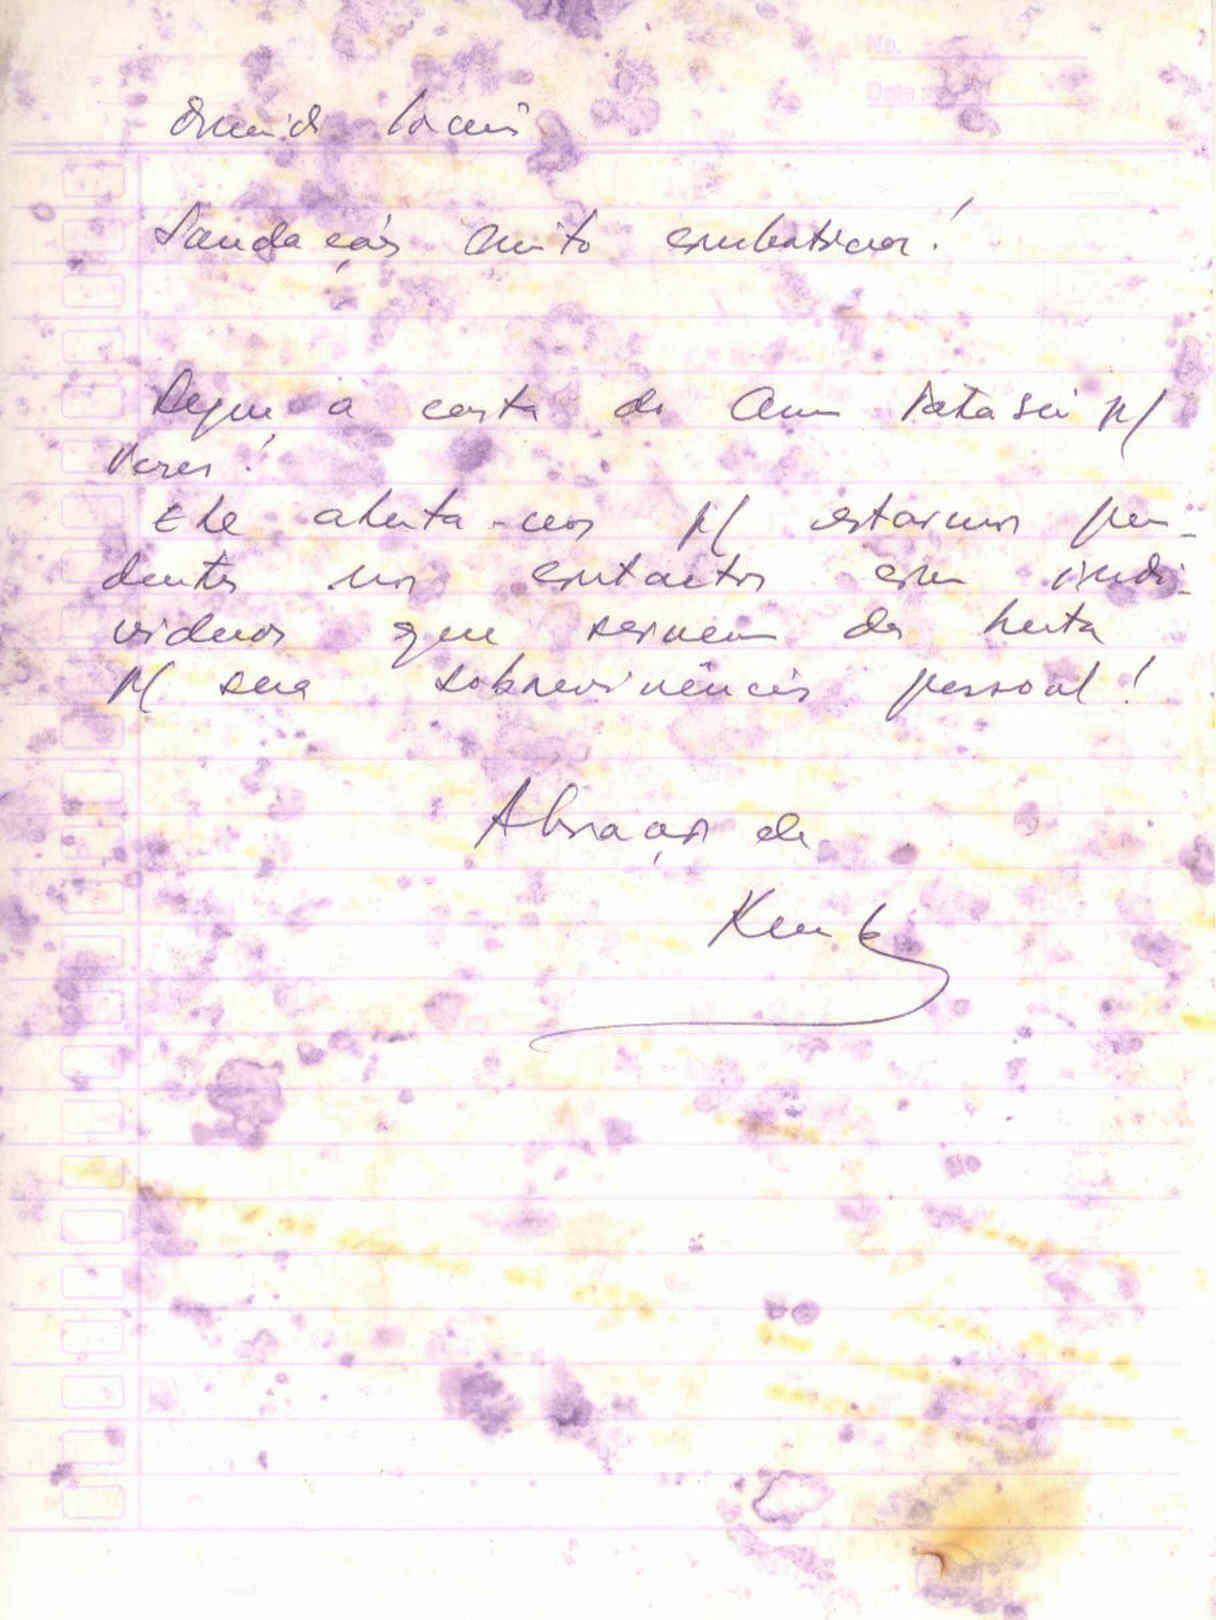 No.
Date
Saudações muito combativas!
Segue a carta do Ama p/
veres!
Ele alerta-nos p/ estarmos pru-
dentes nos contactos com indi-
viduos que servem da luta
p/ sua sobrevivência pessoal!
Abraços de